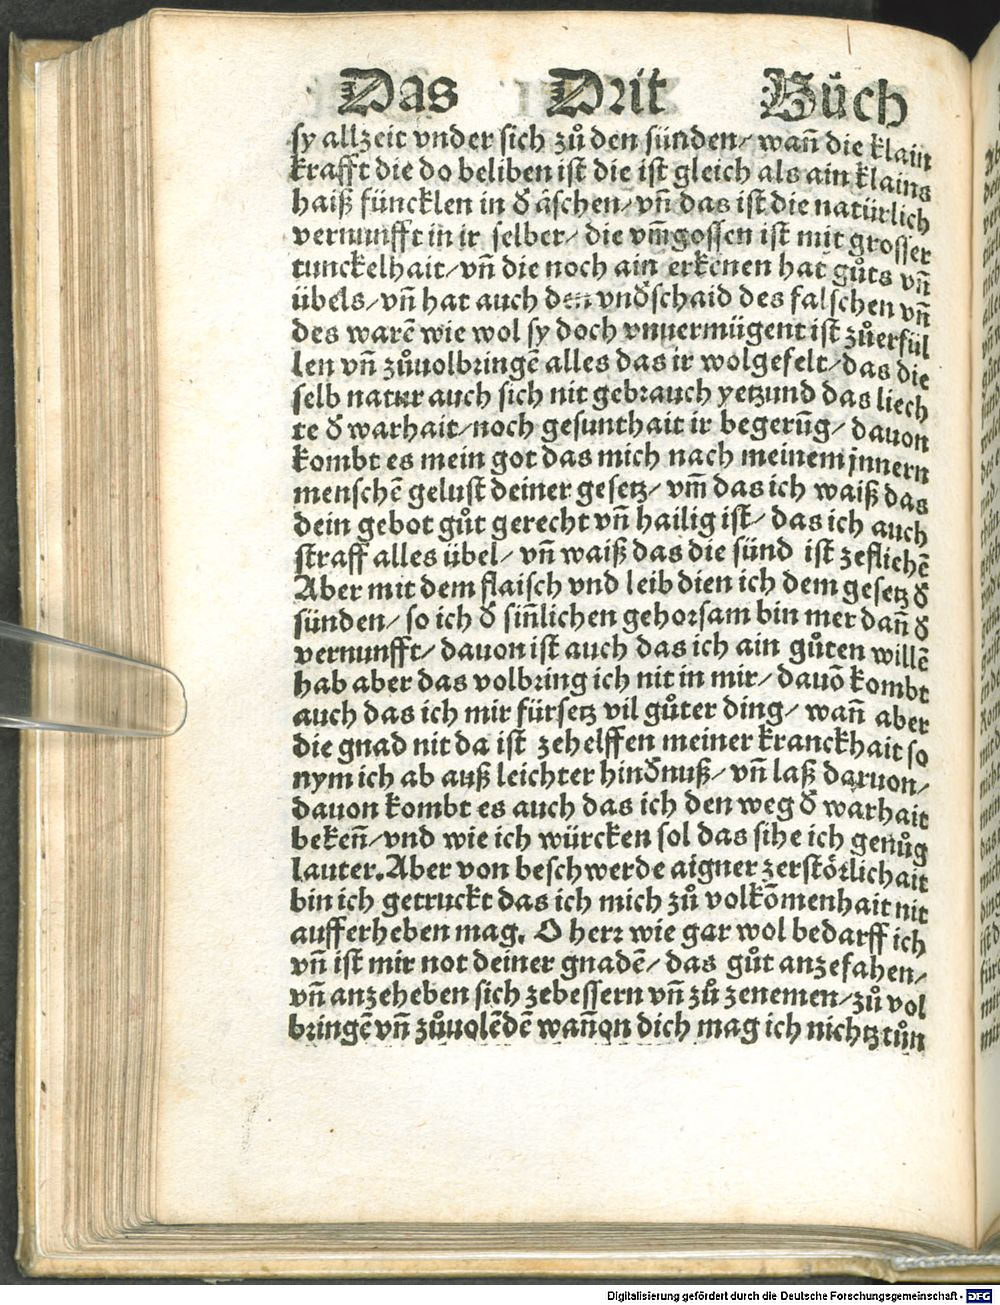 Das Drit Bůch
sy allzeit vnder sich zů den sünden/ wañ die klain
krafft die do beliben ist die ist gleich als ain klains
haiß füncklen in ð äschen/ vñ das ist die natürlich
vernunfft in ir selber/ die vm̃gossen ist mit grosser
tunckelhait/ vñ die noch ain erkenen hat gůts vñ
übels/ vñ hat auch den vnðschaid des falschen vñ
des warẽ wie wol sy doch vnuermügent ist zůerfül
len vñ zůuolbringẽ alles das ir wolgefelt/ das die
selb natur auch sich nit gebrauch yetzund das liech
te ð warhait/ noch gesunthait ir begerũg/ dauon
kombt es mein got das mich nach meinem jnnern
menschẽ gelust deiner gesetz/ vm̃ das ich waiß das
dein gebot gůt gerecht vñ hailig ist/ das ich auch
straff alles übel/ vñ waiß das die sünd ist zefliehẽ
Aber mit dem flaisch vnd leib dien ich dem gesetz ð
sünden/ so ich ð siñlichen gehorsam bin mer dañ ð
vernunfft/ dauon ist auch das ich ain gůten willẽ
hab aber das volbring ich nit in mir/ dauõ kombt
auch das ich mir fürsetz vil gůter ding/ wañ aber
die gnad nit da ist zehelffen meiner kranckhait so
nym ich ab auß leichter hinðnuß/ vñ laß daruon/
dauon kombt es auch das ich den weg ð warhait
bekeñ/ vnd wie ich würcken sol das sihe ich genůg
lauter. Aber von beschwerde aigner zerstörlichait
bin ich getruckt das ich mich zů volkõmenhait nit
aufferheben mag. O herr wie gar wol bedarff ich
vñ ist mir not deiner gnadẽ/ das gůt anzefahen/
vñ anzeheben sich zebessern vñ zů zenemen/ zů vol
bringẽ vñ zůuolẽdẽ wañ on dich mag ich nichtz tůn
Digitalisierung gefördert durch die Deutsche Forschungsgemeinschaft - DFG